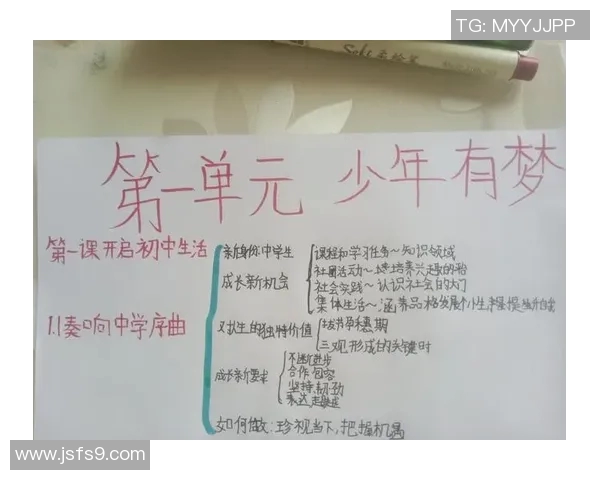 TG: MYYJJPP
第一单元 少年有梦
第一课开启初中生活
1.1奏响中学序曲
新身份:中学生
成长新机会
课程和学习任务~知识领域
社团活动~培养兴趣的
社会实践~认识社会的大门
集体生活~涵养品格发展个小生
人生的独特价值
拔节孕穗期
三观形成的关键时
成长新要求
不断进步
合作包容
坚持韧劲
表达
如何做:珍视当下,把握机遇
www.jsfs9.com